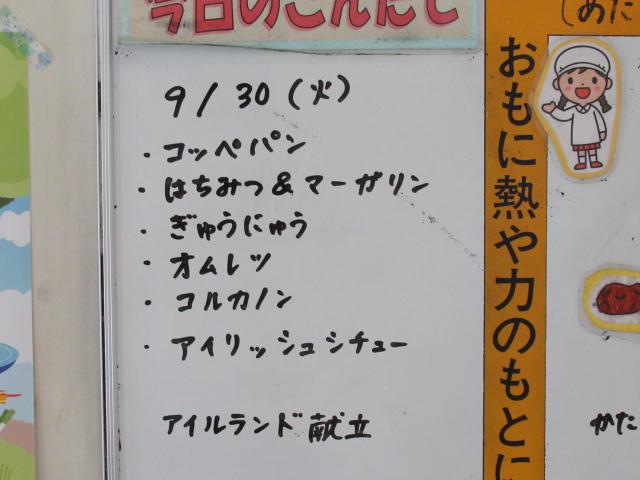 今日のこんだて
9/30(火)
・コッペパン
・はちみつ&マーガリン
・ぎゅうにゅう
・オムレツ
・コルカノン
・アイリッシュシチュー
アイルランド献立
(あた
おもに熱や力のもとに
かた